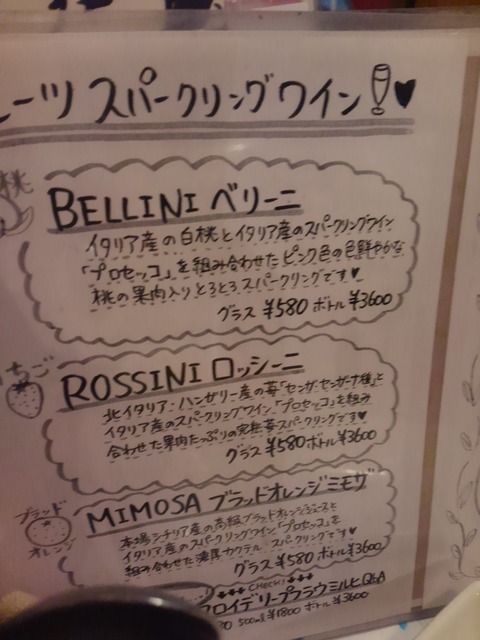 ーツ スパークリングワイン
桃
BELLINI ベリーニ
イタリア産の白桃とイタリア産のスパークリングワイン
「プロセッコ」を組み合わせたピンク色の色鮮やかな
桃の果肉入りとろとろスパークリングです♥
グラス ¥580 ボトル ¥3600
いちご
ROSSINI ロッシーニ
北イタリア・ハンガリー産の苺「センガ・センガーナ種」と
イタリア産のスパークリングワイン「プロセッコ」を組み
合わせた果肉たっぷりの完熟苺スパークリングです♥
グラス ¥580 ボトル ¥3600
ブラッド
オレンジ
MIMOSA ブラッドオレンジミモザ
本場シチリア産の高級ブラッドオレンジジュースと
イタリア産のスパークリングワイン「プロセッコ」を
組み合わせた濃厚カクテル スパークリングです♥
グラス ¥580 ボトル ¥3600
CHECK!
フロイデリープフラウミルヒ Q.b.A
500ml ¥1800 ボトル ¥3600